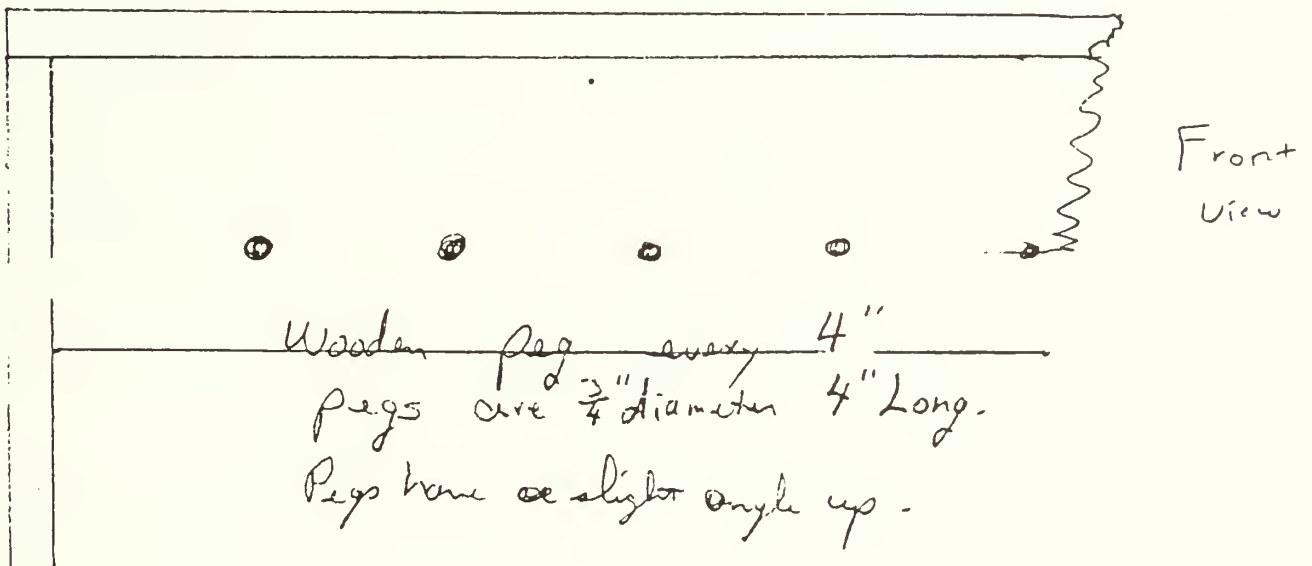 Front
View
Wooden peg every 4"
pegs are 3/4" diameter 4" Long.
Pegs have a slight angle up.